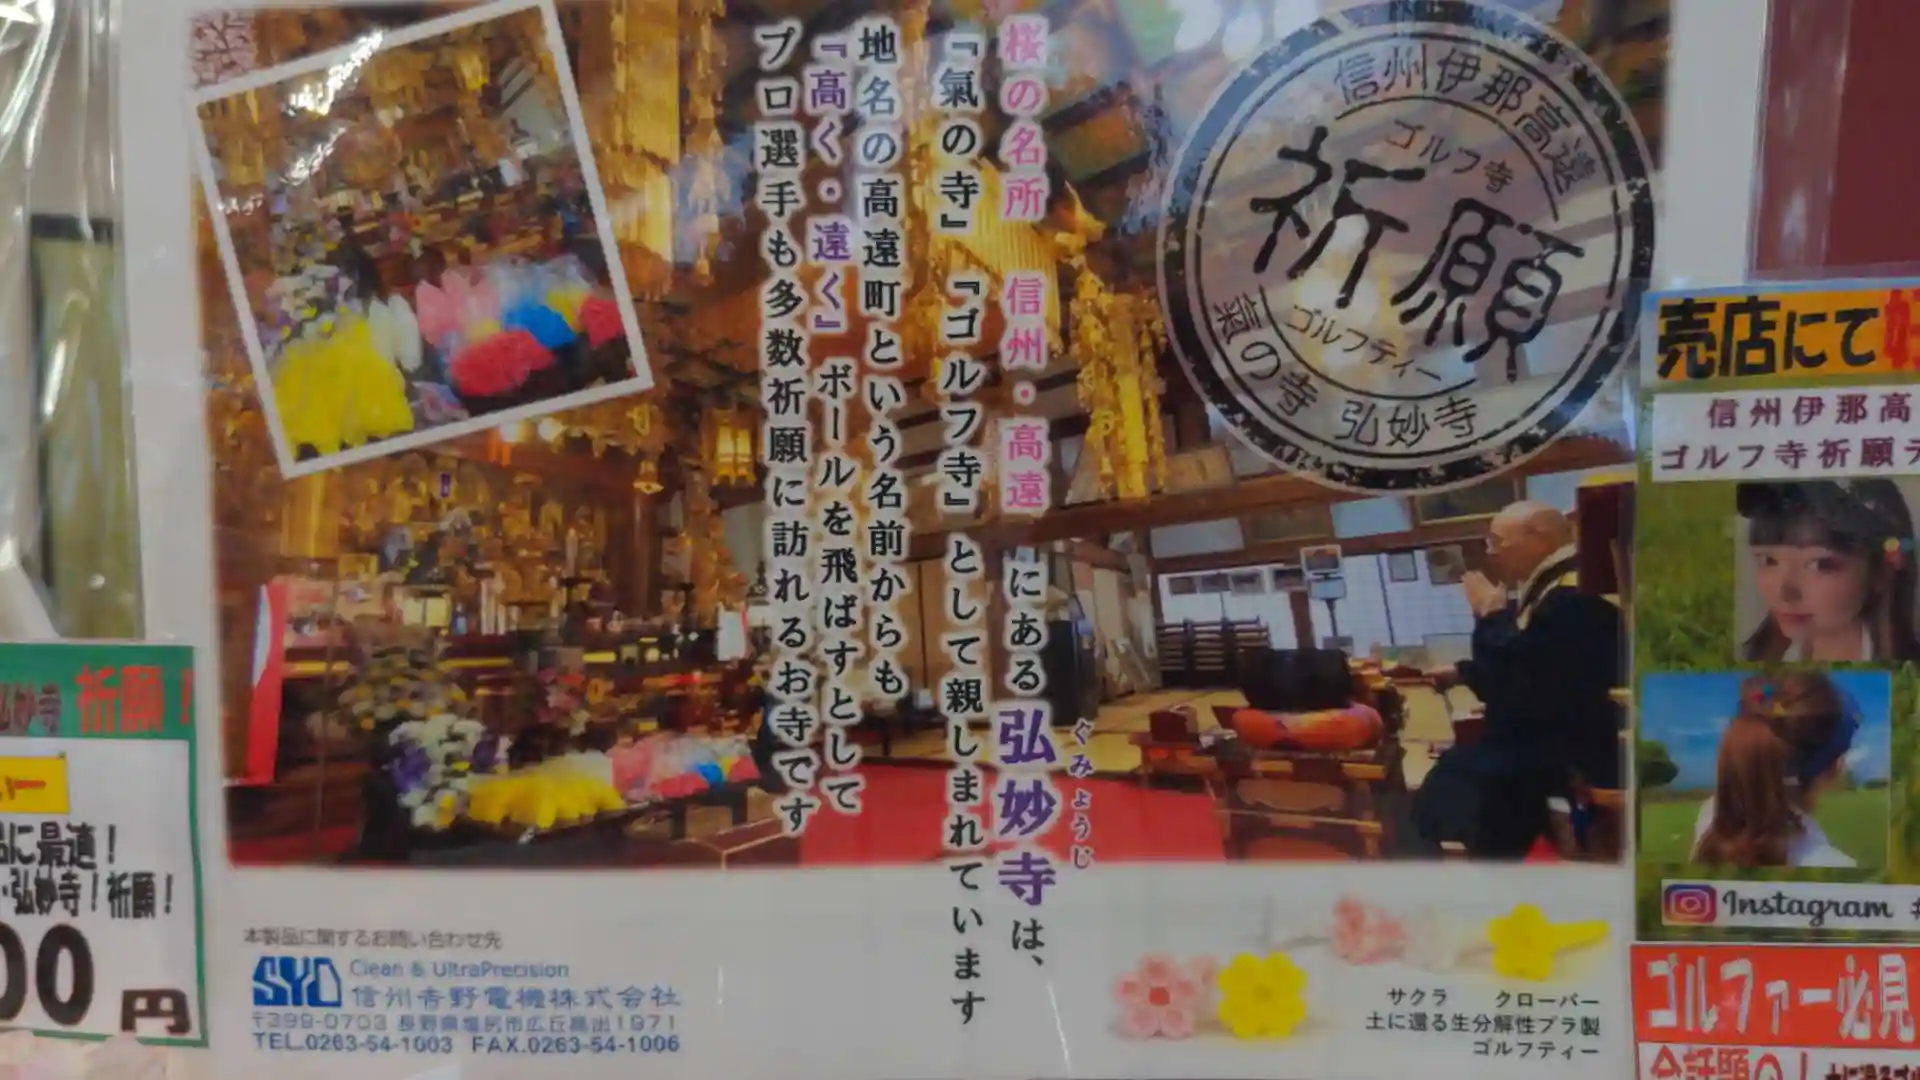 桜の名所 信州・高遠にある弘妙寺は、
ぐみょうじ
『氣の寺』『ゴルフ寺』として親しまれています
地名の高遠町という名前からも
『高く・遠く』ボールを飛ばすとして
プロ選手も多数祈願に訪れるお寺です
信州伊那高遠
ゴルフ寺
祈願
ゴルフティー
氣の寺 弘妙寺
本製品に関するお問い合わせ先
SYD Clean & UltraPrecision
信州吉野電機株式会社
〒399-0703 長野県塩尻市広丘高出1971
TEL.0263-54-1003 FAX.0263-54-1006
サクラ クローバー
土に還る生分解性プラ製
ゴルフティー
弘妙寺 祈願!
に最適!
弘妙寺!祈願!
00円
売店にて
信州伊那高
ゴルフ寺祈願テ
Instagram #
ゴルファー必見
今話題の!